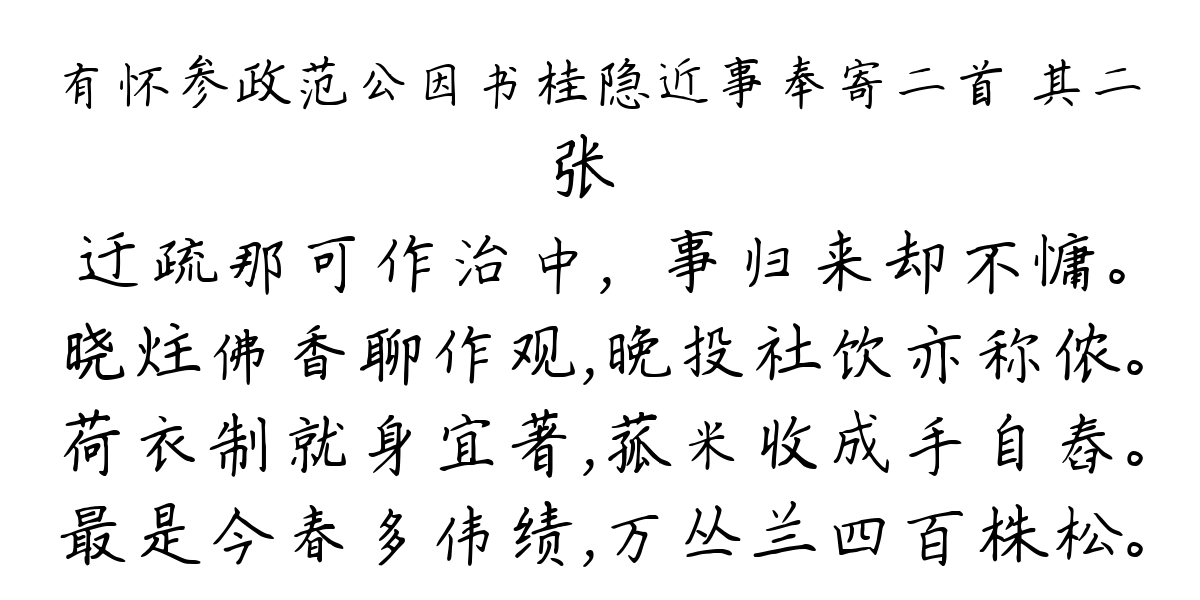 有怀参政范公因书桂隐近事奉寄二首 其二
张
迂疏那可作治中，事归来却不慵。
晓炷佛香聊作观,晚投社饮亦称侬。
荷衣制就身宜著,菰米收成手自舂。
最是今春多伟绩,万丛兰四百株松。